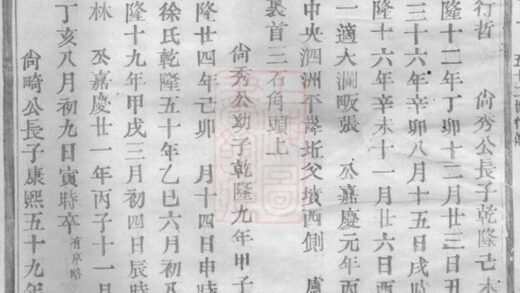 行哲 尙秀公長子乾隆己未
隆十二年丁卯十二月廿三日丑
三十六年辛卯八月十五日戌時
隆十六年辛未十一月廿六日酉
一適大瀾畈張 㱑嘉慶元年丙
中央泗洲平墍坵父墳西側
裘首三石角頭上
尙秀公幼子乾隆九年甲子
隆廿四年己卯 月十四日申時
徐氏乾隆五十年乙巳六月初
隆十九年甲戌三月初四日辰時
林 㱑嘉慶廿一年丙子十一月
丁亥八月初九日寅時卒 有序略
尙畸公長子康熙五十九年